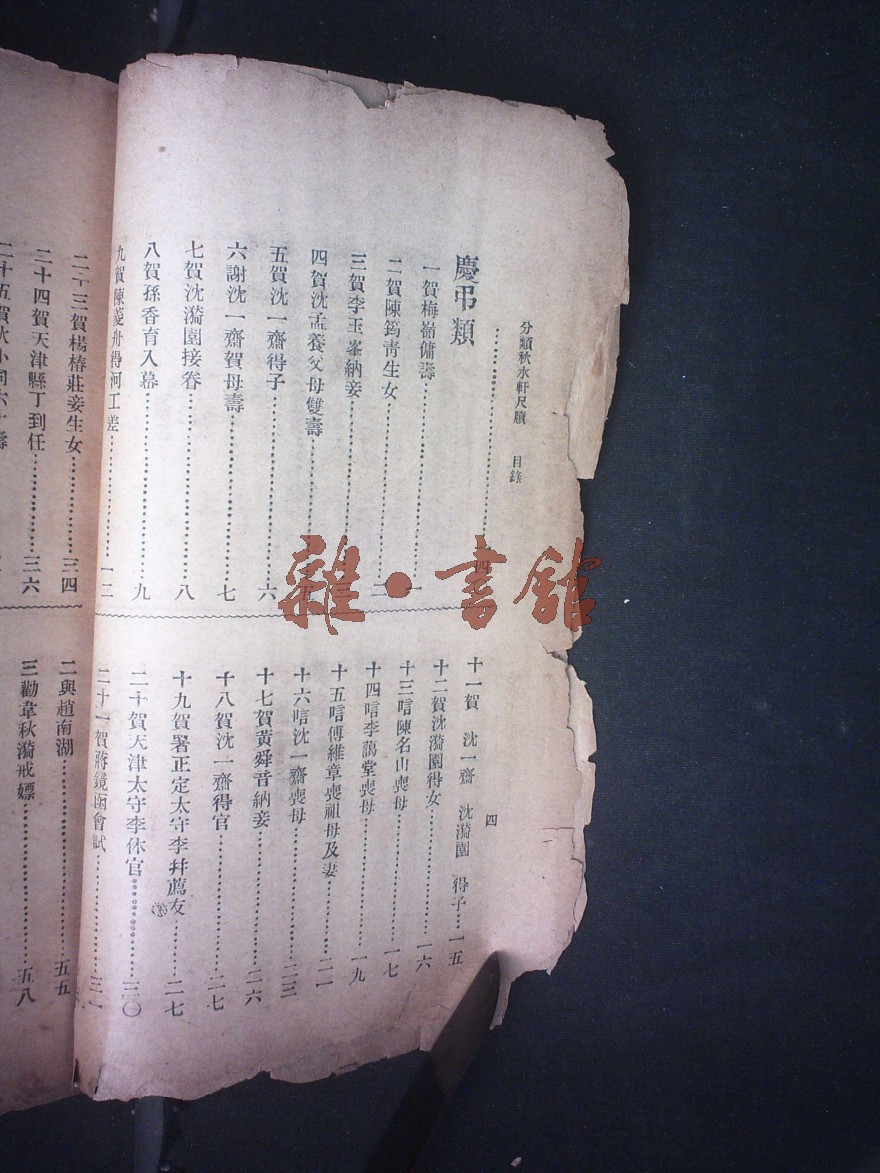 分類秋水軒尺牘 目錄
四
四
慶弔類
一賀梅嶺傭壽 一
二賀陳筠青生女 二
三賀李玉峯納妾
四賀沈孟養父母雙壽
五賀沈一齋得子 六
六謝沈一齋賀母壽 七
七賀沈漪園接眷 八
八賀孫香育入幕 九
九賀陳菱舟得河工差 一二
十一賀 沈一齋 沈漪園 得子 一五
十二賀沈漪園得女 一六
十三唁陳名山喪母 一七
十四唁李藹堂喪母 一九
十五唁傅維章喪祖母及妻 二一
十六唁沈一齋喪母 二三
十七賀黃舜音納妾 二六
十八賀沈一齋得官 二七
十九賀署正定太守李幷薦友 二七
二十賀天津太守李休官 三〇
二十一賀蔣鏡函會試 三一
二十三賀楊椿莊妾生女 三四
二十四賀天津縣丁到任 三六
二十五賀狄小同六十壽
二與趙南湖 五五
三勸韋秋漪戒嫖 五八
雜·書館